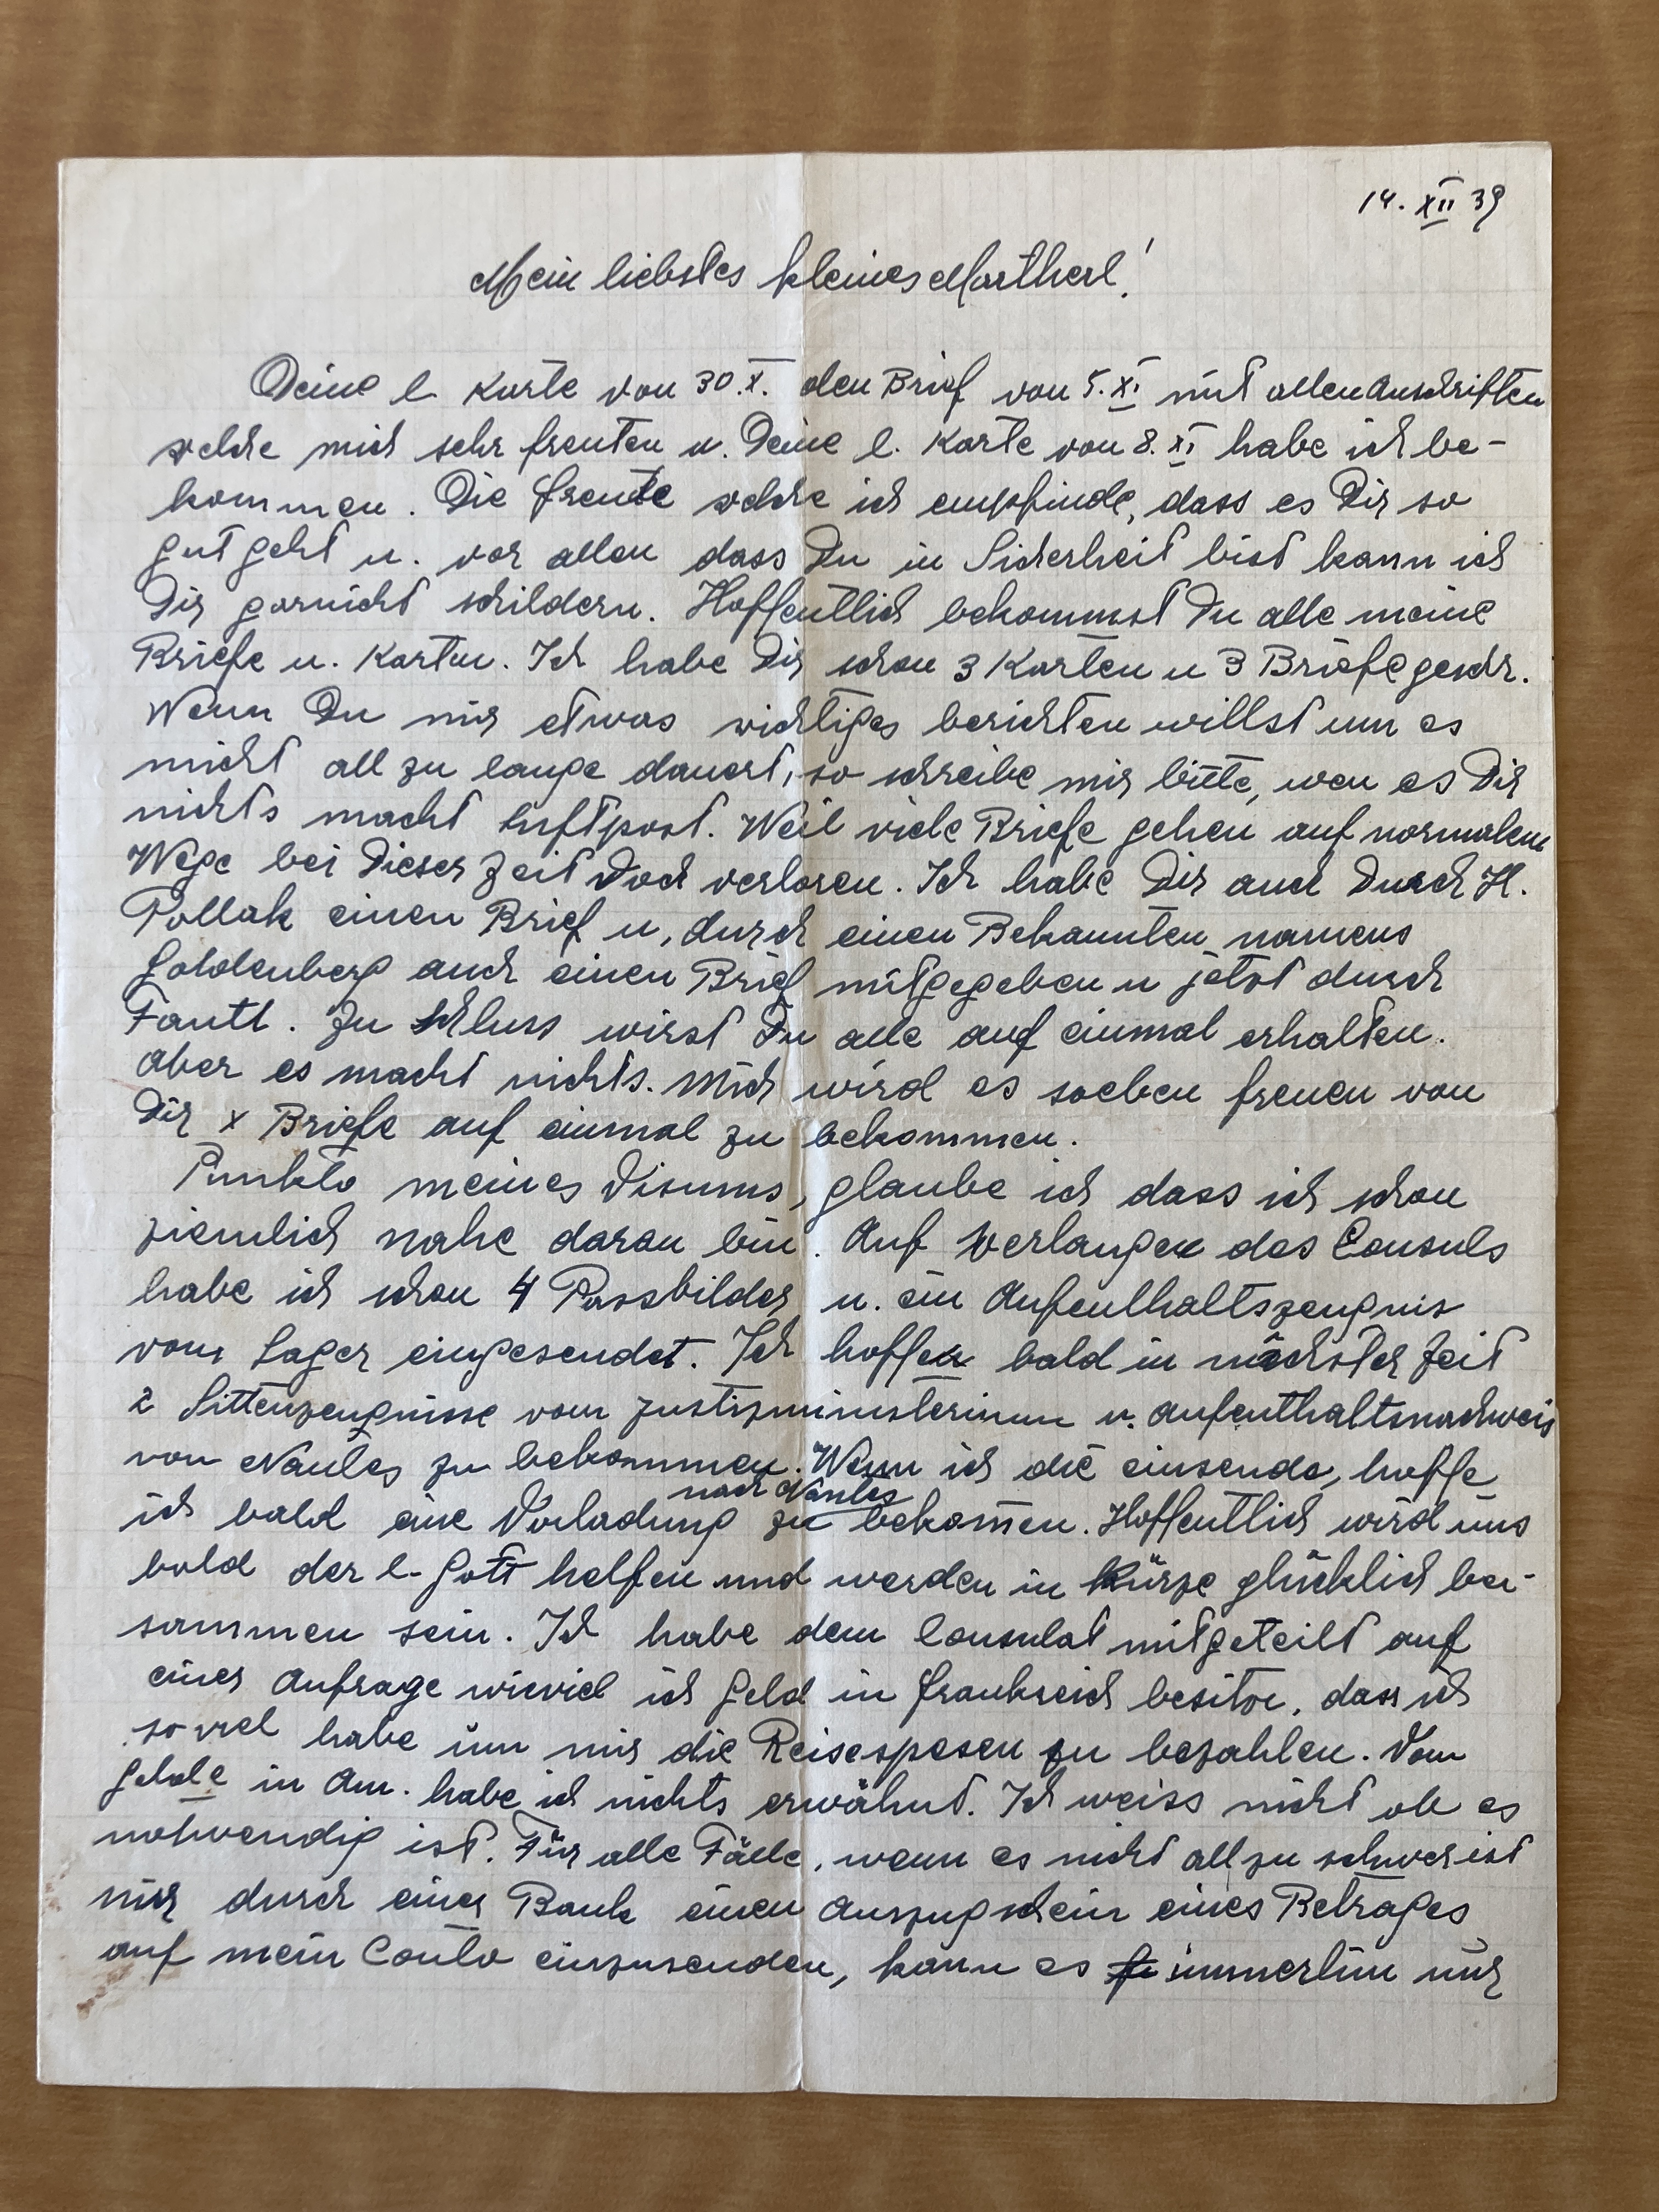 14. XII 39
Mein liebstes kleines Martherl!
Deine l. Karte von 30.X. den Brief von 5.XI. mit allen Anschriften
welche mich sehr freuten u. Deine l. Karte von 8.XI habe ich be-
kommen. Die Freude welche ich empfinde, dass es Dir so
gut geht u. vor allen dass Du in Sicherheit bist kann ich
Dir garnicht schildern. Hoffentlich bekommst Du alle meine
Briefe u. Karten. Ich habe Dir schon 3 Karten u 3 Briefe geschr.
Wenn Du mir etwas wichtiges berichten willst um es
nicht all zu lange dauert, so schreibe mir bitte, wen es Dir
nichts macht Luftpost. Weil viele Briefe gehen auf normalem
Wege bei dieser Zeit doch verloren. Ich habe Dir auch durch H.
Pollak einen Brief u, durch einen Bekannten namens
Goldenberg auch einen Brief mitgegeben u jetzt durch
Fantl. Zu Schluss wirst Du alle auf einmal erhalten.
Aber es macht nichts. Mich wird es soeben freuen von
Dir x Briefe auf einmal zu bekommen.
Punkto meines Visums, glaube ich dass ich schon
ziemlich nahe daran bin. Auf Verlangen des Consuls
habe ich schon 4 Passbilder u. ein Aufenthaltszeugnis
vom Lager eingesendet. Ich hoffe bald in nächster Zeit
2 Sittenzeugnisse vom Justizministerium u. Aufenthaltsnachweis
von Nantes zu bekommen. Wenn ich die einsende, hoffe
nach Nantes
ich bald eine Vorladung zu bekom̄en. Hoffentlich wird uns
bald der l. Gott helfen und werden in Kürze glücklich bei-
sammen sein. Ich habe dem Consulat mitgeteilt auf
einer Anfrage wieviel ich Geld in Frankreich besitze, dass ich
so viel habe um mir die Reisespesen zu bezahlen. Vom
Gelde in Am. habe ich nichts erwähnt. Ich weiss nicht ob es
notwendig ist. Für alle Fälle, wenn es nicht all zu schwer ist
mir durch einer Bank einen Auszugschein eines Betrages
auf mein Conto einzusenden, kann es immerhin nur